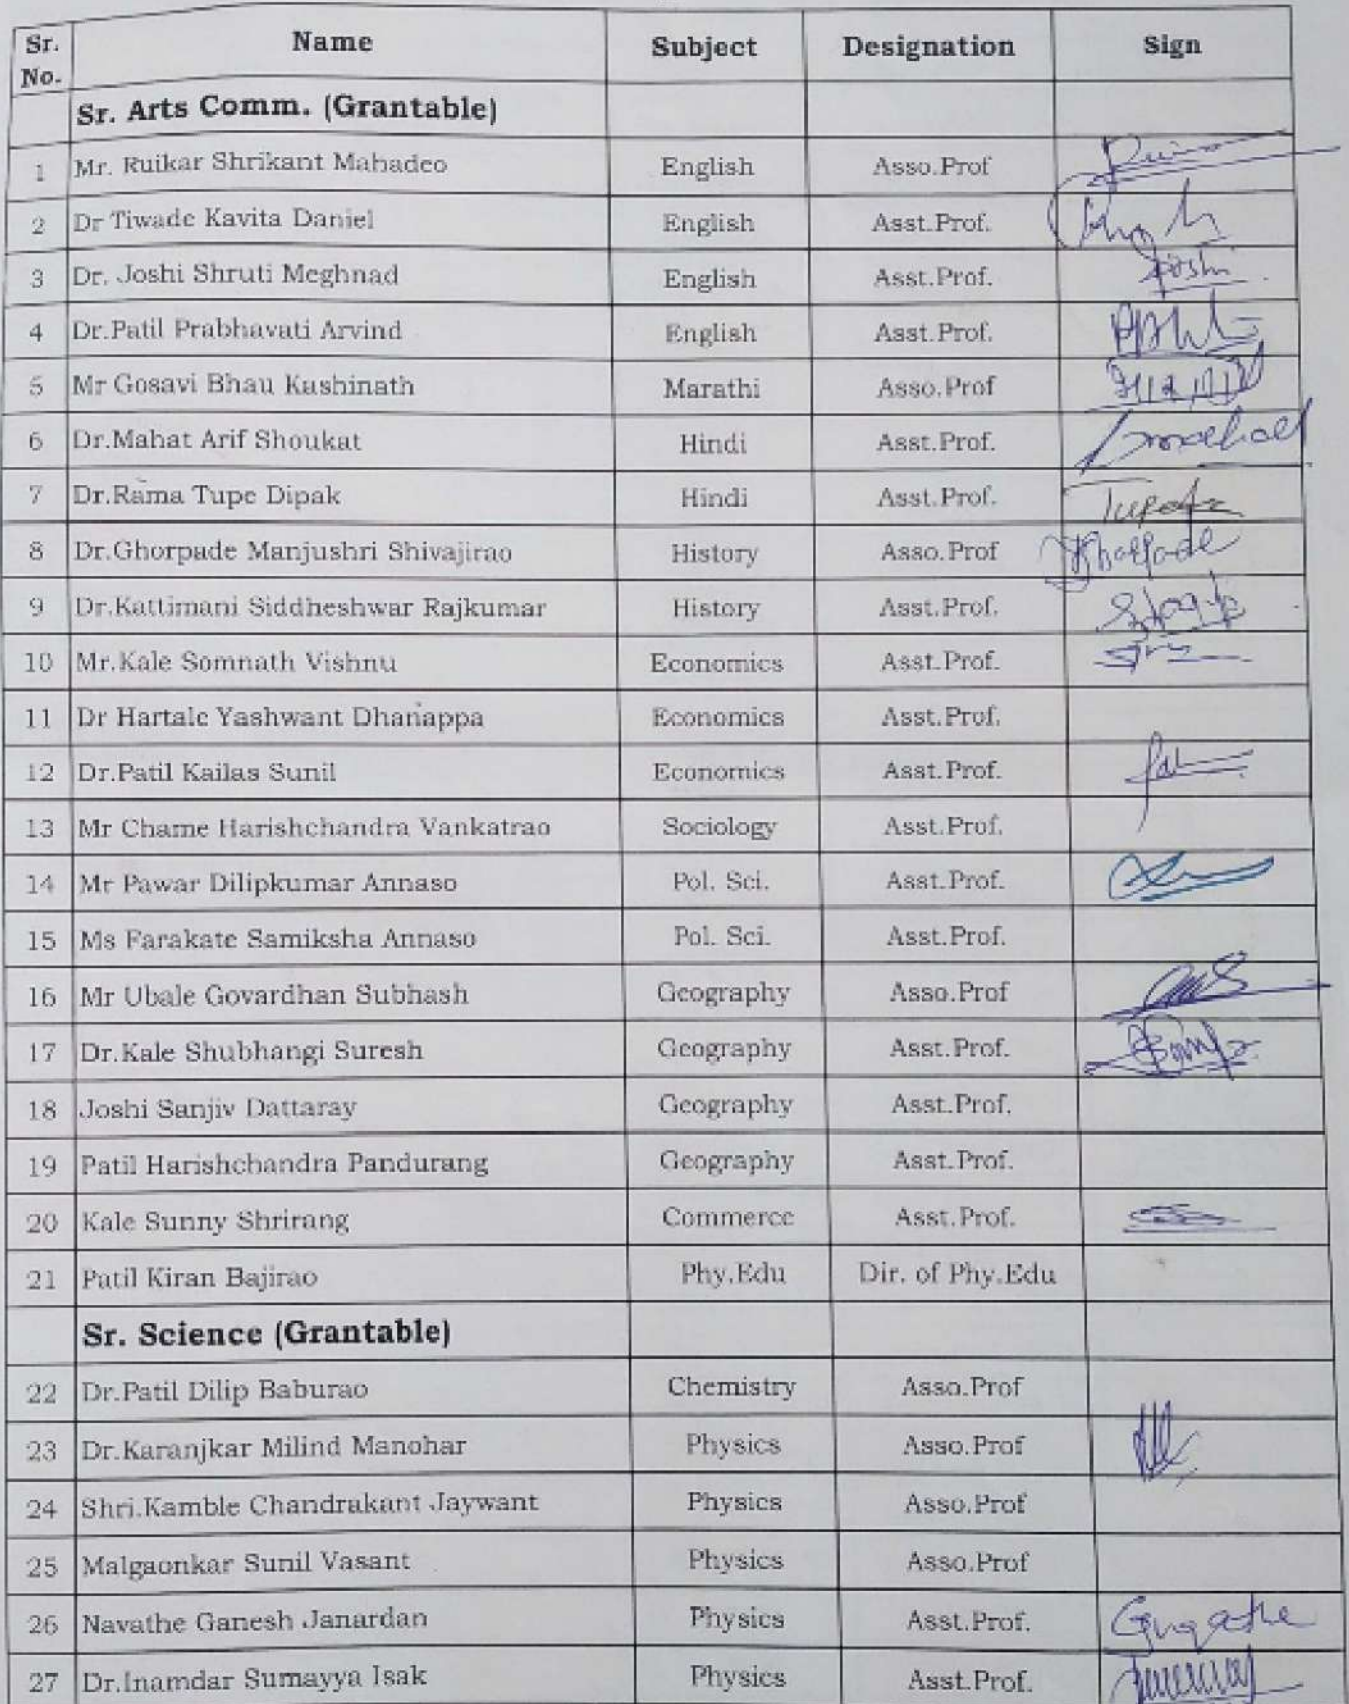 Sr. No. Name Subject Designation Sign
Sr. Arts Comm. (Grantable)
1 Mr. Ruikar Shrikant Mahadeo English Asso.Prof
2 Dr Tiwade Kavita Daniel English Asst.Prof.
3 Dr. Joshi Shruti Meghnad English Asst.Prof. Joshi
4 Dr.Patil Prabhavati Arvind English Asst.Prof.
5 Mr Gosavi Bhau Kashinath Marathi Asso.Prof
6 Dr.Mahat Arif Shoukat Hindi Asst.Prof.
7 Dr.Rama Tupe Dipak Hindi Asst.Prof.
8 Dr.Ghorpade Manjushri Shivajirao History Asso.Prof
9 Dr.Kattimani Siddheshwar Rajkumar History Asst.Prof.
10 Mr.Kale Somnath Vishnu Economics Asst.Prof.
11 Dr Hartale Yashwant Dhanappa Economics Asst.Prof.
12 Dr.Patil Kailas Sunil Economics Asst.Prof.
13 Mr Chame Harishchandra Vankatrao Sociology Asst.Prof.
14 Mr Pawar Dilipkumar Annaso Pol. Sci. Asst.Prof.
15 Ms Farakate Samiksha Annaso Pol. Sci. Asst.Prof.
16 Mr Ubale Govardhan Subhash Geography Asso.Prof
17 Dr.Kale Shubhangi Suresh Geography Asst.Prof.
18 Joshi Sanjiv Dattaray Geography Asst.Prof.
19 Patil Harishchandra Pandurang Geography Asst.Prof.
20 Kale Sunny Shrirang Commerce Asst.Prof.
21 Patil Kiran Bajirao Phy.Edu Dir. of Phy.Edu
Sr. Science (Grantable)
22 Dr.Patil Dilip Baburao Chemistry Asso.Prof
23 Dr.Karanjkar Milind Manohar Physics Asso.Prof
24 Shri.Kamble Chandrakant Jaywant Physics Asso.Prof
25 Malgaonkar Sunil Vasant Physics Asso.Prof
26 Navathe Ganesh Janardan Physics Asst.Prof.
27 Dr.Inamdar Sumayya Isak Physics Asst.Prof.